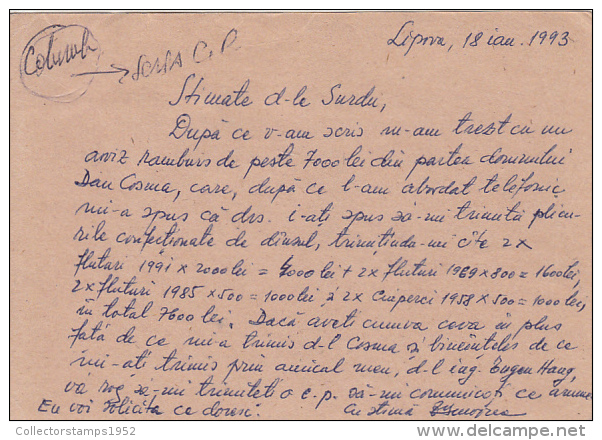 Lipova, 18 ian. 1993
Scris C.P.
Stimate d-le Surdu,
După ce v-am scris m-am trezit cu un
aviz ramburs de peste 7000 lei din partea domnului
Dan Cosma, care, după ce l-am abordat telefonic
mi-a spus că dvs. i-ati spus să-mi trimită plicu-
rile confectionate de dînsul, trimitindu-mi cîte 2x
fluturi 1991 x 2000 lei = 4000 lei + 2x fluturi 1969 x 800 = 1600 lei,
2x fluturi 1985 x 500 = 1000 lei, si 2x Ciuperci 1958 x 500 = 1000 lei,
în total 7600 lei. Dacă aveti cumva ceva în plus
fată de ce mi-a trimis d-l Cosma si bineînteles de ce
mi-ati trimis prin amicul meu, d-l ing. Eugen Hang,
vă rog să-mi trimiteti o c.p. să-mi comunicati ce anume.
Eu voi solicita ce doresc. Cu stimă
Collectorstamps1952
delcampe.net